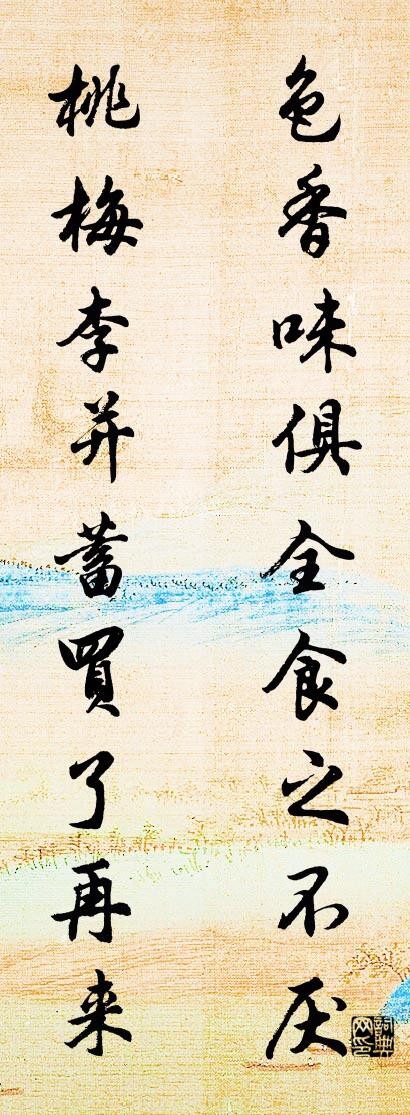 色香味俱全食之不厌
桃梅李并蓄買了再来
詞典网印